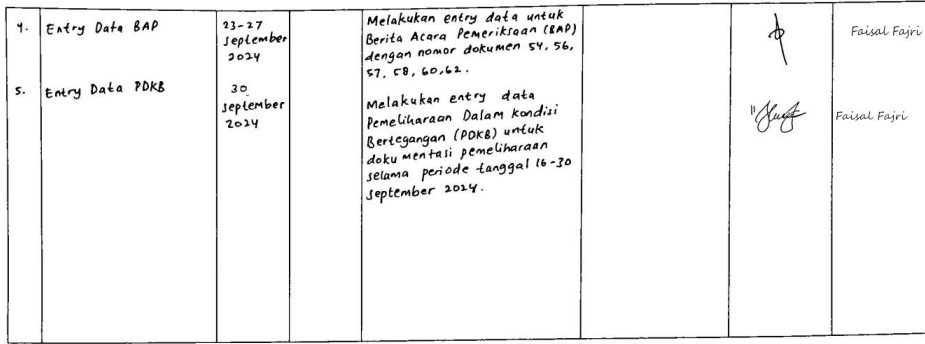 4. Entry Data BAP
23-27
September
2024
Melakukan entry data untuk
Berita Acara Pemeriksaan (BAP)
dengan nomor dokumen 54, 56,
57, 58, 60, 62.
Faisal Fajri
5. Entry Data PDKB
30
September
2024
Melakukan entry data
Pemeliharaan Dalam kondisi
Bertegangan (PDKB) untuk
dokumentasi pemeliharaan
selama periode tanggal 16-30
September 2024.
Faisal Fajri